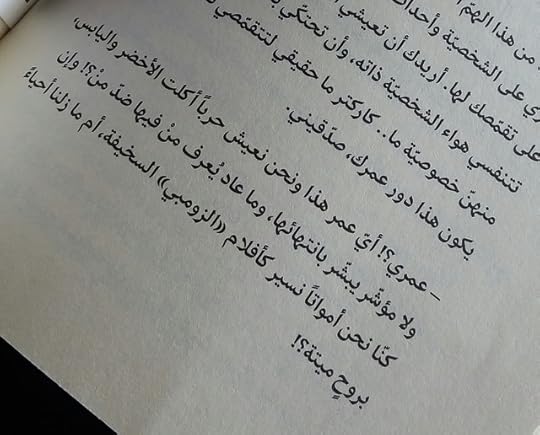 من هذا الهمّ
ري على الشخصيّة وأحدا
على تقمّصك لها. أريدك أن تعيشي
تتنفسي هواء الشخصيّة ذاته، وأن تحتكّي
منهنّ خصوصيّة ما.. كاركتر ما حقيقي لتتقمّصي
يكون هذا دور عمرك، صدّقيني.
– عمري؟! أيّ عمر هذا ونحن نعيش حرباً أكلت الأخضر واليابس،
ولا مؤشّر يبشّر بانتهائها، وما عاد يُعرف منْ فيها ضدّ منْ؟! وإن
كنّا نحن أمواتاً نسير كأفلام «الزومبي» السخيفة، أم ما زلنا أحياءً
بروحٍ ميتة؟!